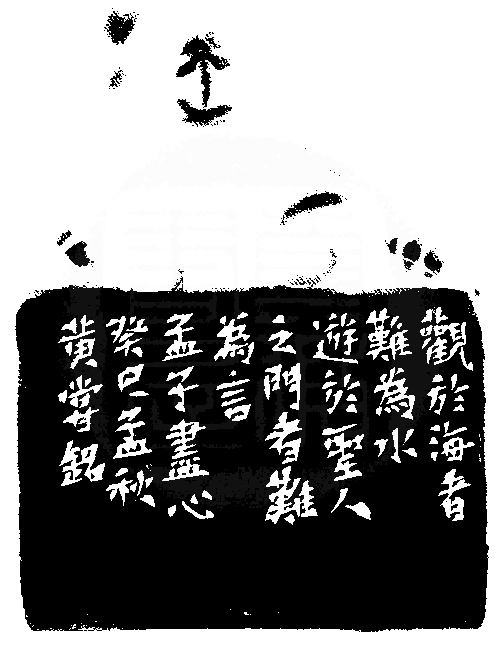 觀於海者
難為水
遊於聖人
之門者難
為言
孟子盡心
癸巳孟秋
黄嘗銘